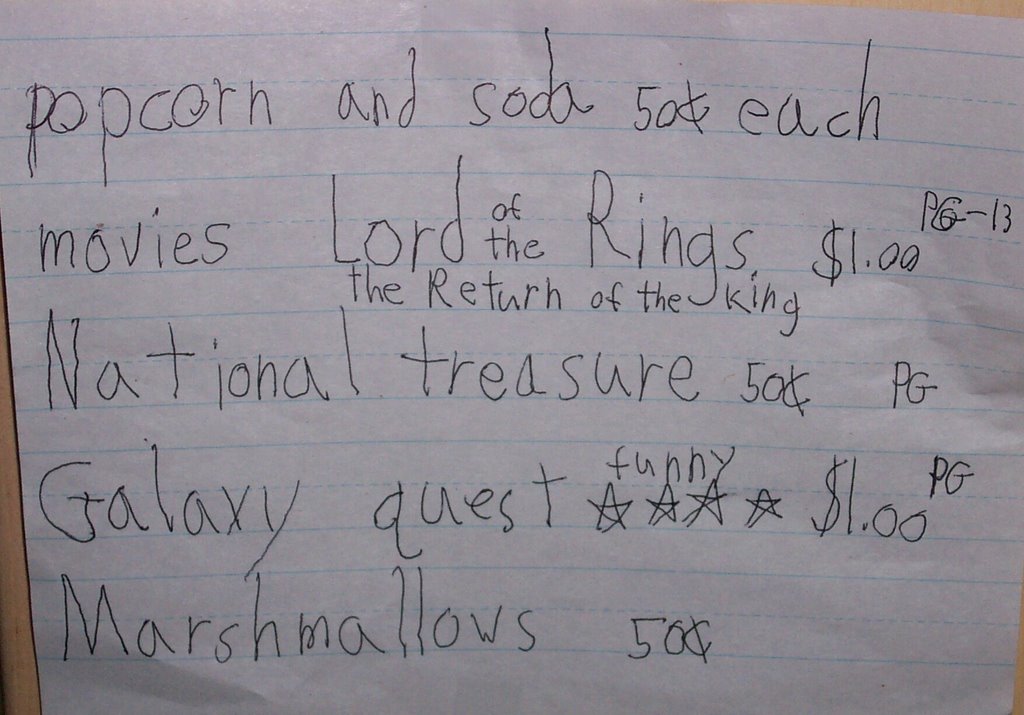 popcorn and soda 50¢ each
movies Lord of the Rings $1.00 PG-13
the Return of the King
National treasure 50¢ PG
Galaxy quest funny ☆☆☆☆ $1.00 PG
Marshmallows 50¢